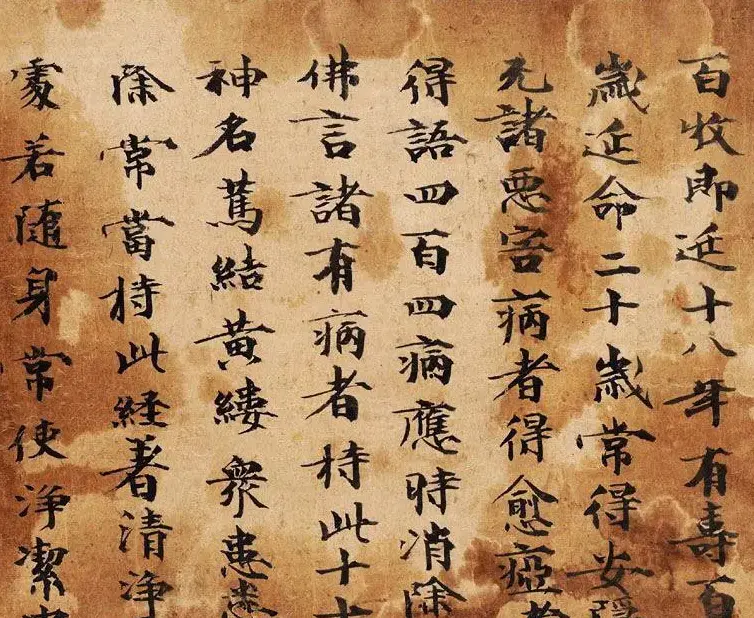 百收即延十八年有壽百
歲延命二十歲常得安隱
无諸惡害病者得愈瘂者
得語四百四病應時消除
佛言諸有病者持此十
神名蔿結黃縷衆患
除常當持此經著清淨
處若隨身常使淨潔